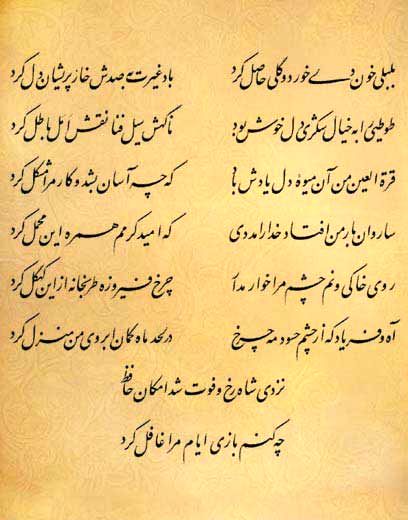 بلبلی خون دلی خورد و گلی حاصل کرد باد غیرت به صدش خار پریشان دل کرد
طوطیی را به خیال شکری دل خوش بود ناگهش سیل فنا نقش امل باطل کرد
قرة العین من آن میوه دل یادش باد که چه آسان بشد و کار مرا مشکل کرد
ساروان بار من افتاد خدا را مددی که امید کرمم همره این محمل کرد
روی خاکی و نم چشم مرا خوار مدار چرخ فیروزه طربخانه از این کهگل کرد
آه و فریاد که از چشم حسود مه چرخ در لحد ماه کمان ابروی من منزل کرد
نزدی شاه رخ و فوت شد امکان حافظ
چه کنم بازی ایام مرا غافل کرد